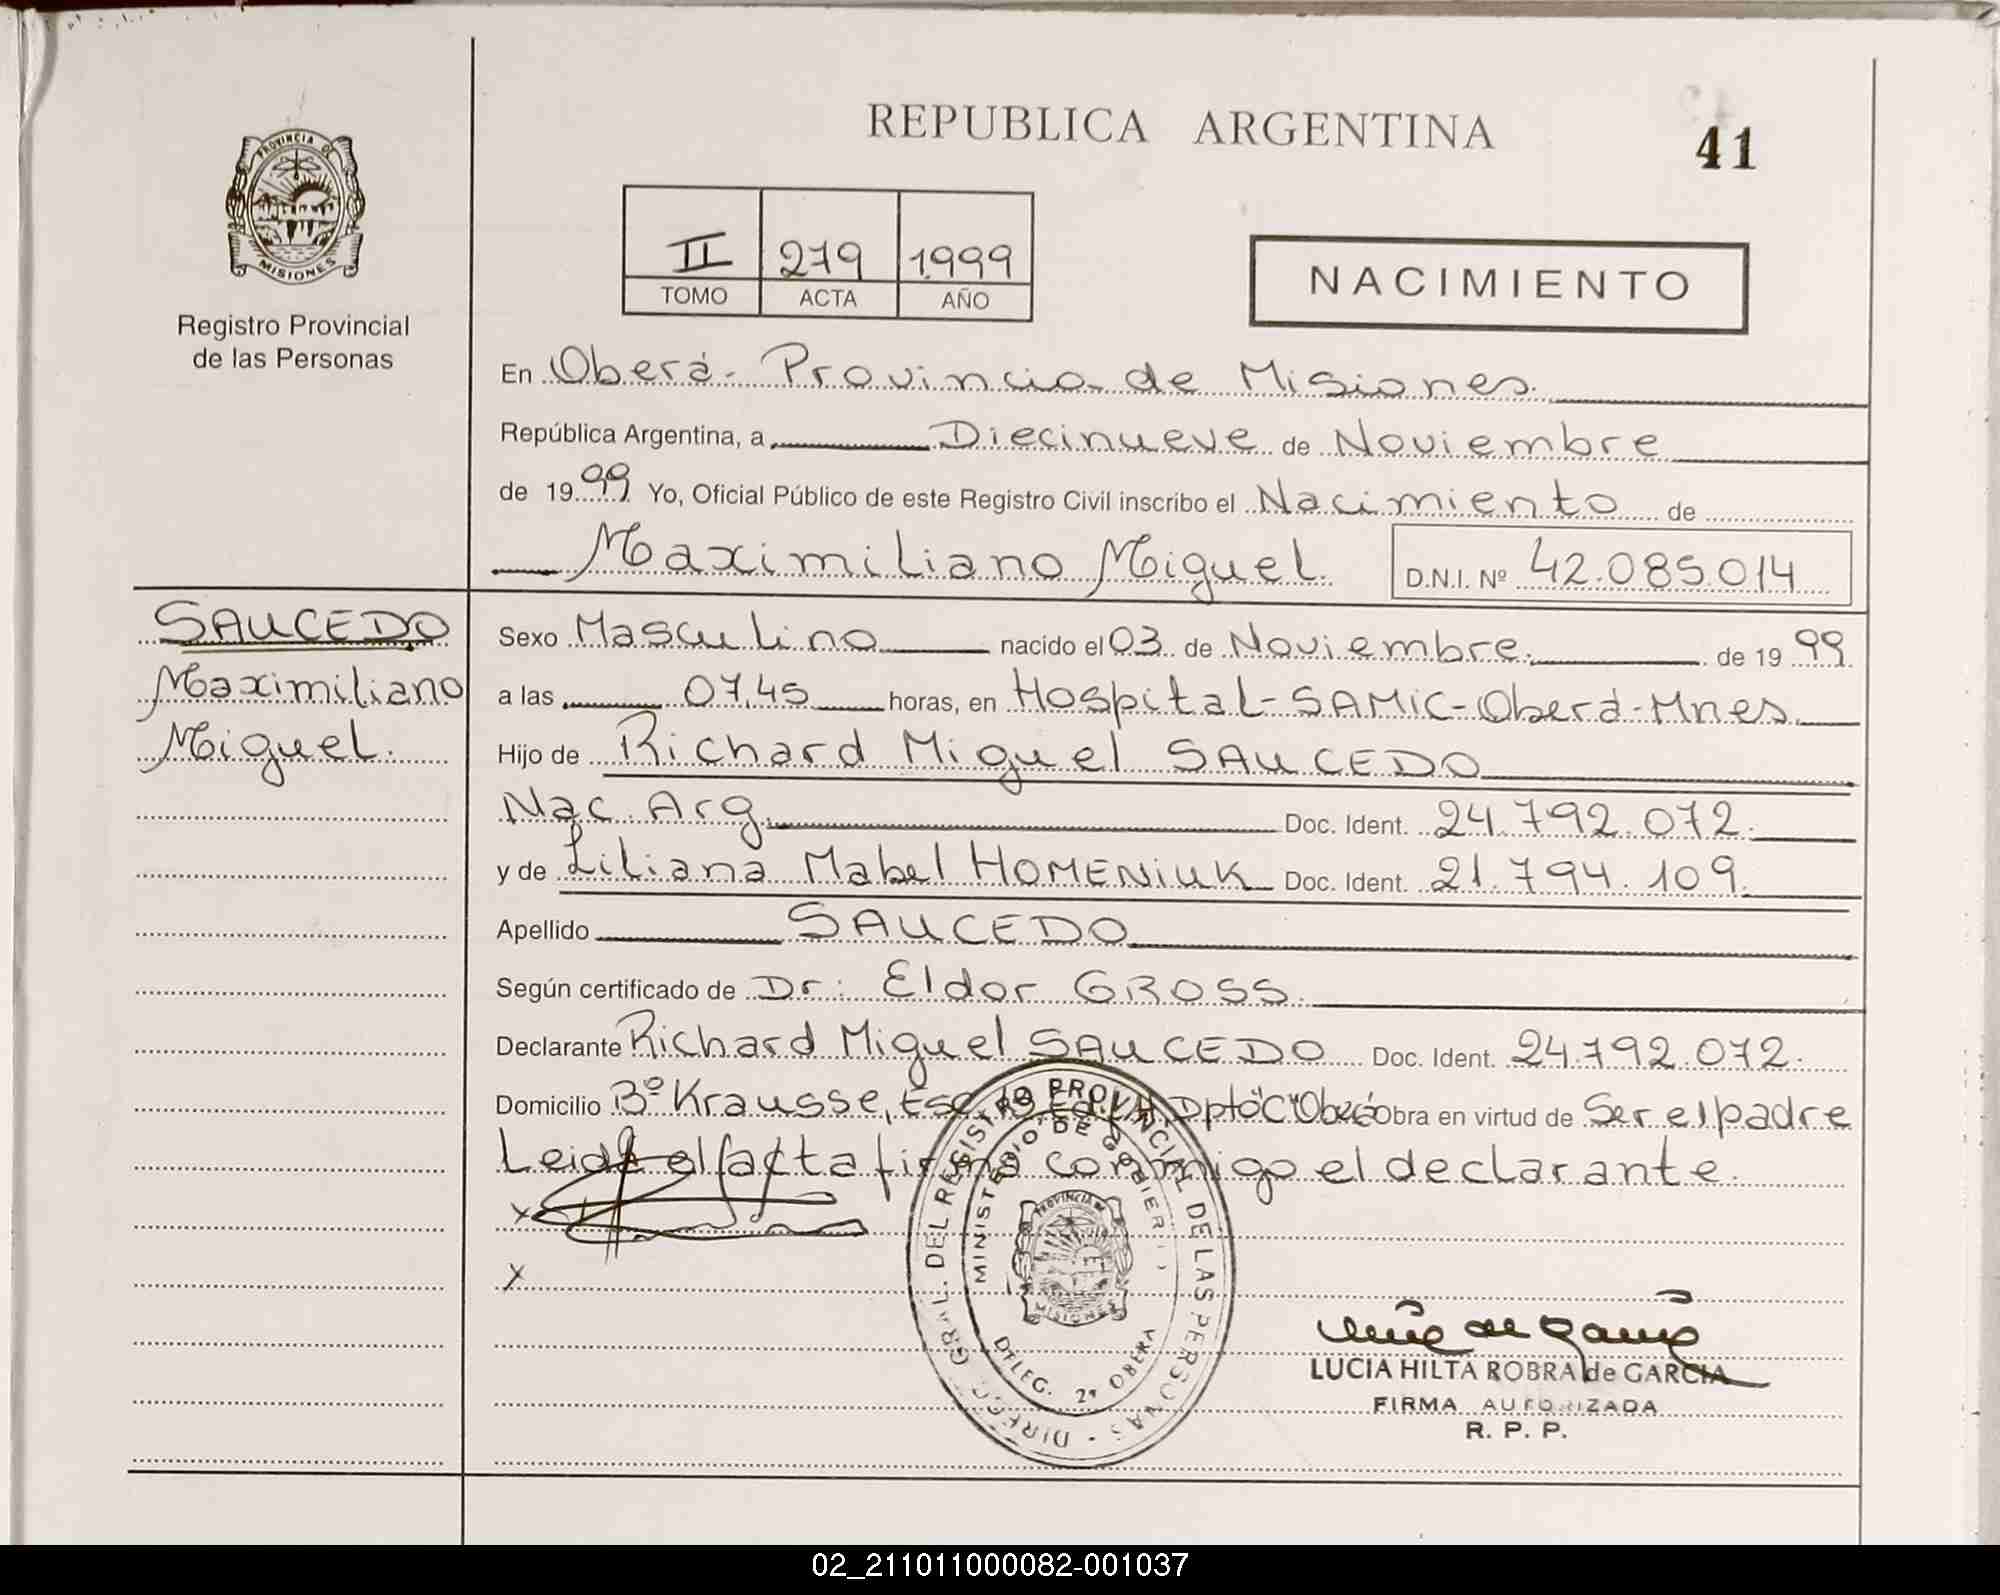 REPUBLICA ARGENTINA
41
PROVINCIA DE
MISIONES
Registro Provincial
de las Personas
II 279 1999
TOMO ACTA AÑO
NACIMIENTO
En Oberá - Provincia de Misiones.
República Argentina, a Diecinueve de Noviembre
de 1999 Yo, Oficial Público de este Registro Civil inscribo el Nacimiento de
Maximiliano Miguel. D.N.I. Nº 42.085.014
SAUCEDO
Maximiliano
Miguel.
Sexo Masculino nacido el 03 de Noviembre. de 1999
a las 07,45 horas, en Hospital-SAMIC-Oberá-Mnes.
Hijo de Richard Miguel SAUCEDO
Nac. Arg. Doc. Ident. 24.792.072.
y de Liliana Mabel HOMENIUK Doc. Ident. 21.794.109.
Apellido SAUCEDO
Según certificado de Dr: Eldor GROSS.
Declarante Richard Miguel SAUCEDO Doc. Ident. 24.792.072.
Domicilio Bº Krausse, Esc. Dpto "C" Oberá Obra en virtud de Ser el padre
Leida el acta firma conmigo el declarante.
x
x
DIRECC. GRAL. DEL REGISTRO PROVINCIAL DE LAS PERSONAS
MINISTERIO DE GOBIERNO
PROVINCIA DE
MISIONES
DELEG. 2ª OBERA
LUCIA HILTA ROBRA de GARCIA
FIRMA AUTORIZADA
R. P. P.
02_211011000082-001037